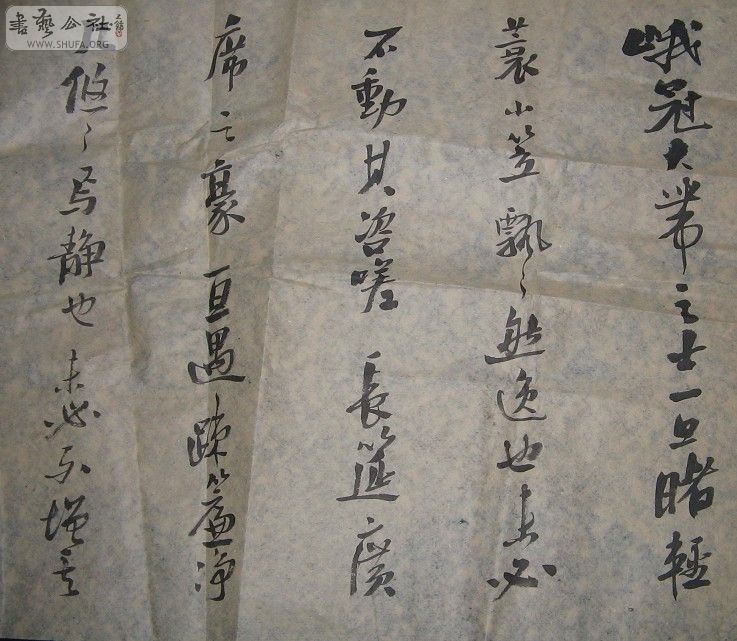 書藝公社
WWW.SHUFA.ORG
峨冠大帶之士一旦睹輕
蓑小笠飄々然逸也未必
不動其咨嗟長筵廣
席之豪一旦遇疎簾净
悠々焉静也未必不增其